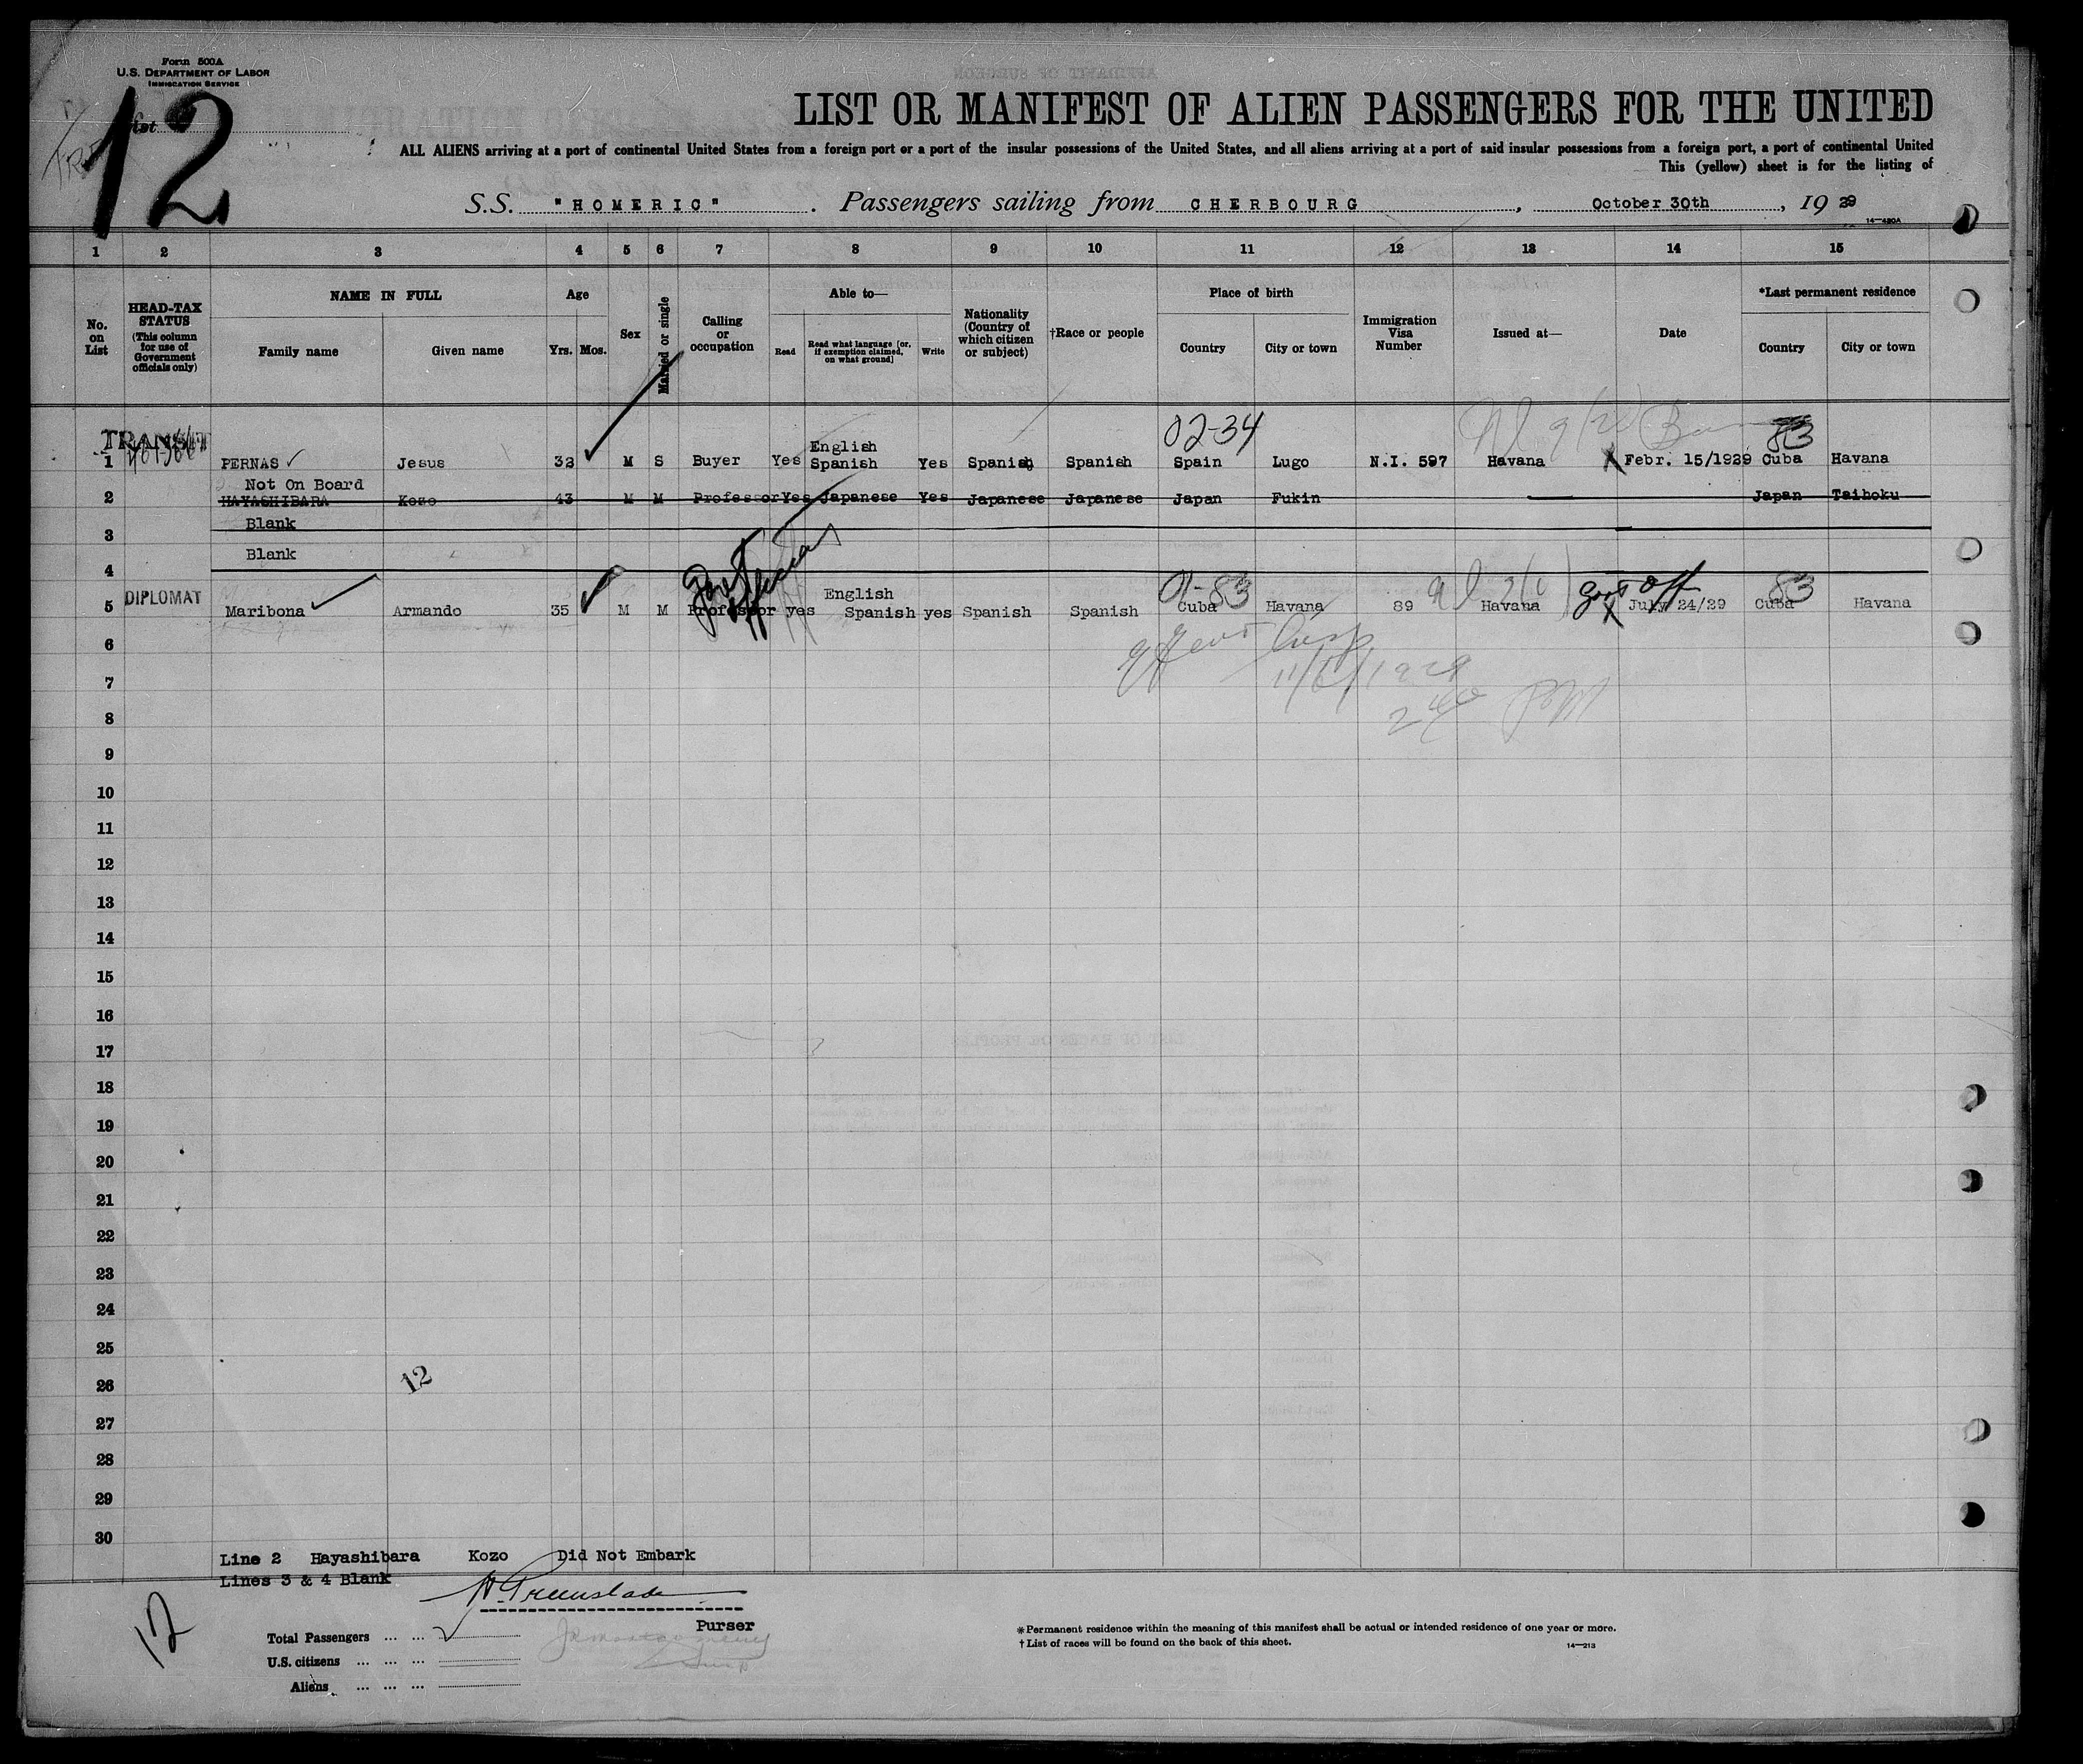 Form 500A
U.S. DEPARTMENT OF LABOR
IMMIGRATION SERVICE
12
LIST OR MANIFEST OF ALIEN PASSENGERS FOR THE UNITED
ALL ALIENS arriving at a port of continental United States from a foreign port or a port of the insular possessions of the United States, and all aliens arriving at a port of said insular possessions from a foreign port, a port of continental United
This (yellow) sheet is for the listing of
S.S. "HOMERIC". Passengers sailing from CHERBOURG, October 30th, 1929
14—420A
1 2 3 4 5 6 7 8 9 10 11 12 13 14 15
No. on List
HEAD-TAX STATUS (This column for use of Government officials only)
NAME IN FULL
Family name Given name
Age
Yrs. Mos.
Sex
Married or single
Calling or occupation
Able to—
Read Read what language [or, if exemption claimed, on what ground] Write
Nationality (Country of which citizen or subject)
†Race or people
Place of birth
Country City or town
Immigration Visa Number
Issued at—
Date
*Last permanent residence
Country City or town
02-34 83
TRANSIT English
1 PERNAS Jesus 32 M S Buyer Yes Spanish Yes Spanish Spanish Spain Lugo N.I. 597 Havana Febr. 15/1929 Cuba Havana
Not On Board
2 HAYASHIBARA Kozo 43 M M Professor Yes Japanese Yes Japanese Japanese Japan Fukin Japan Taihoku
Blank
3
Blank
4
Govt Official 01-83 Govt Off 83
DIPLOMAT English
5 Maribona Armando 35 M M Professor yes Spanish yes Spanish Spanish Cuba Havana 89 Havana July 24/29 Cuba Havana
6
11/6/1929
7
8
9
10
11
12
13
14
15
16
17
18
19
20
21
22
23
24
25
26
12
27
28
29
30
Line 2 Hayashibara Kozo Did Not Embark
Lines 3 & 4 Blank
12
Purser
Total Passengers ... ...
U.S. citizens ... ... ...
Aliens ... ... ...
*Permanent residence within the meaning of this manifest shall be actual or intended residence of one year or more.
†List of races will be found on the back of this sheet.
14—213